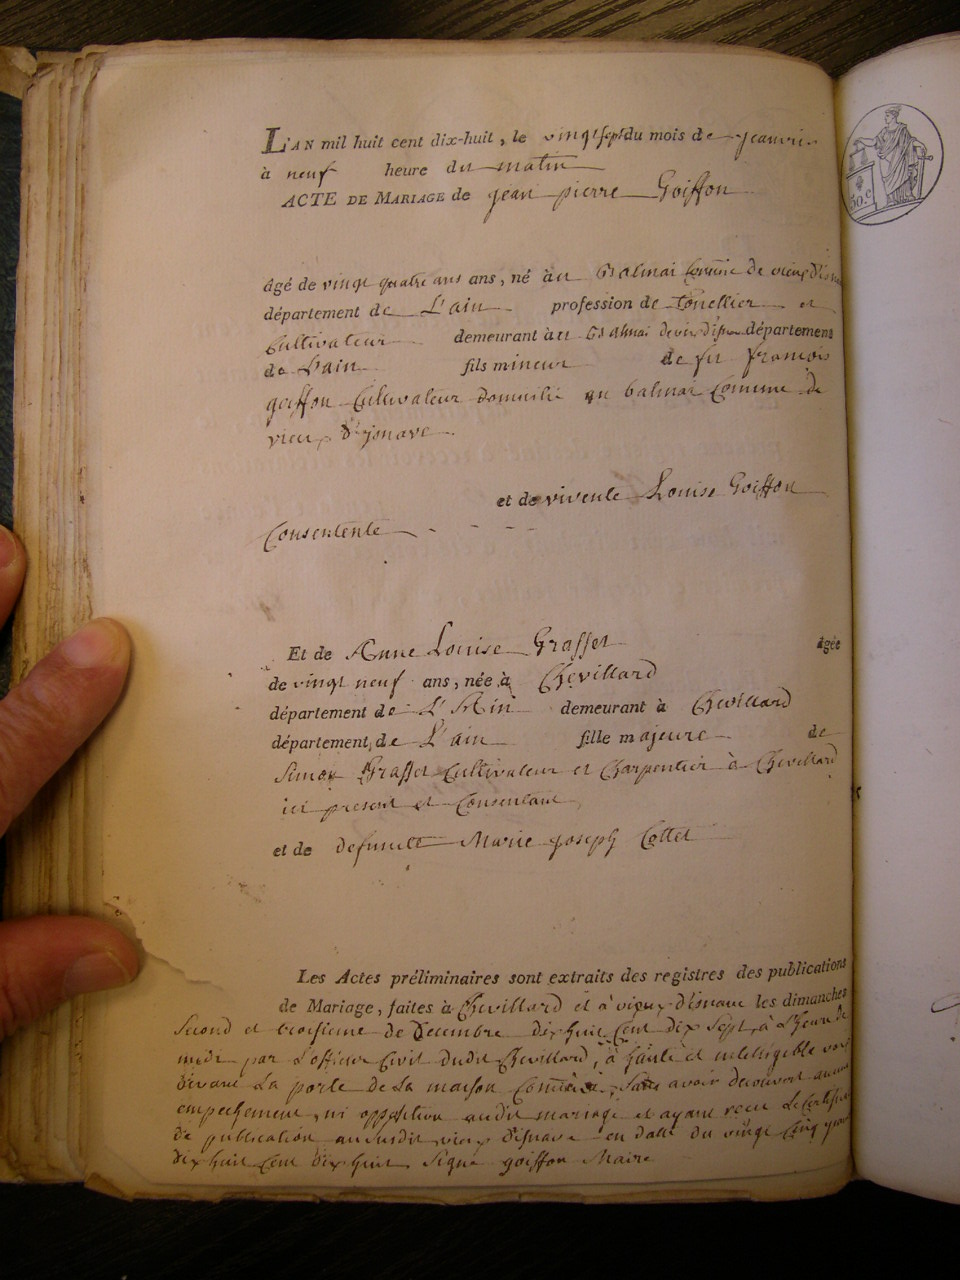 L'AN mil huit cent dix-huit, le vingt sept du mois de janvier
à neuf heure du matin
ACTE DE MARIAGE de jean pierre Goiffon
âgé de vingt quatre ans ans, né àu Balmai Comũne de vieux D'isnave
département de L'ain profession de tonellier et
Cultivateur demeurant àu Balmai département
de L'ain fils mineur de fu francois
goiffon Cultivateur Domicilié au balmai Commune de
vieux D'isnave
et de vivente Louise Goiffon
Consentente
Et de Anne Louise Grasset âgée
de vingt neuf ans, née à Chevillard
département de L'Ain demeurant à Chevillard
département de L'ain fille majeure de
Simon Grasset Cultivateur et Charpentier à Chevillard
ici present et Consentant
et de defunte Marie joseph Cottet
Les Actes préliminaires sont extraits des registres des publications
de Mariage, faites à Chevillard et à vieux D'isnave les dimanches
Second et troisieme de Decembre dix huit Cent dix Sept, à L'heure de
midi par L'officier Civil dudit Chevillard, à haute et intelligible voix
devant La porte de La maison Comũne, Sans avoir decouvert aucun
empechement, ni opposition audit mariage et ayant recu Le Certificat
de publication du susdit vieux D'isnave en date du vingt Cinq
dix huit Cent dix huit Signé goiffon Maire
50 C